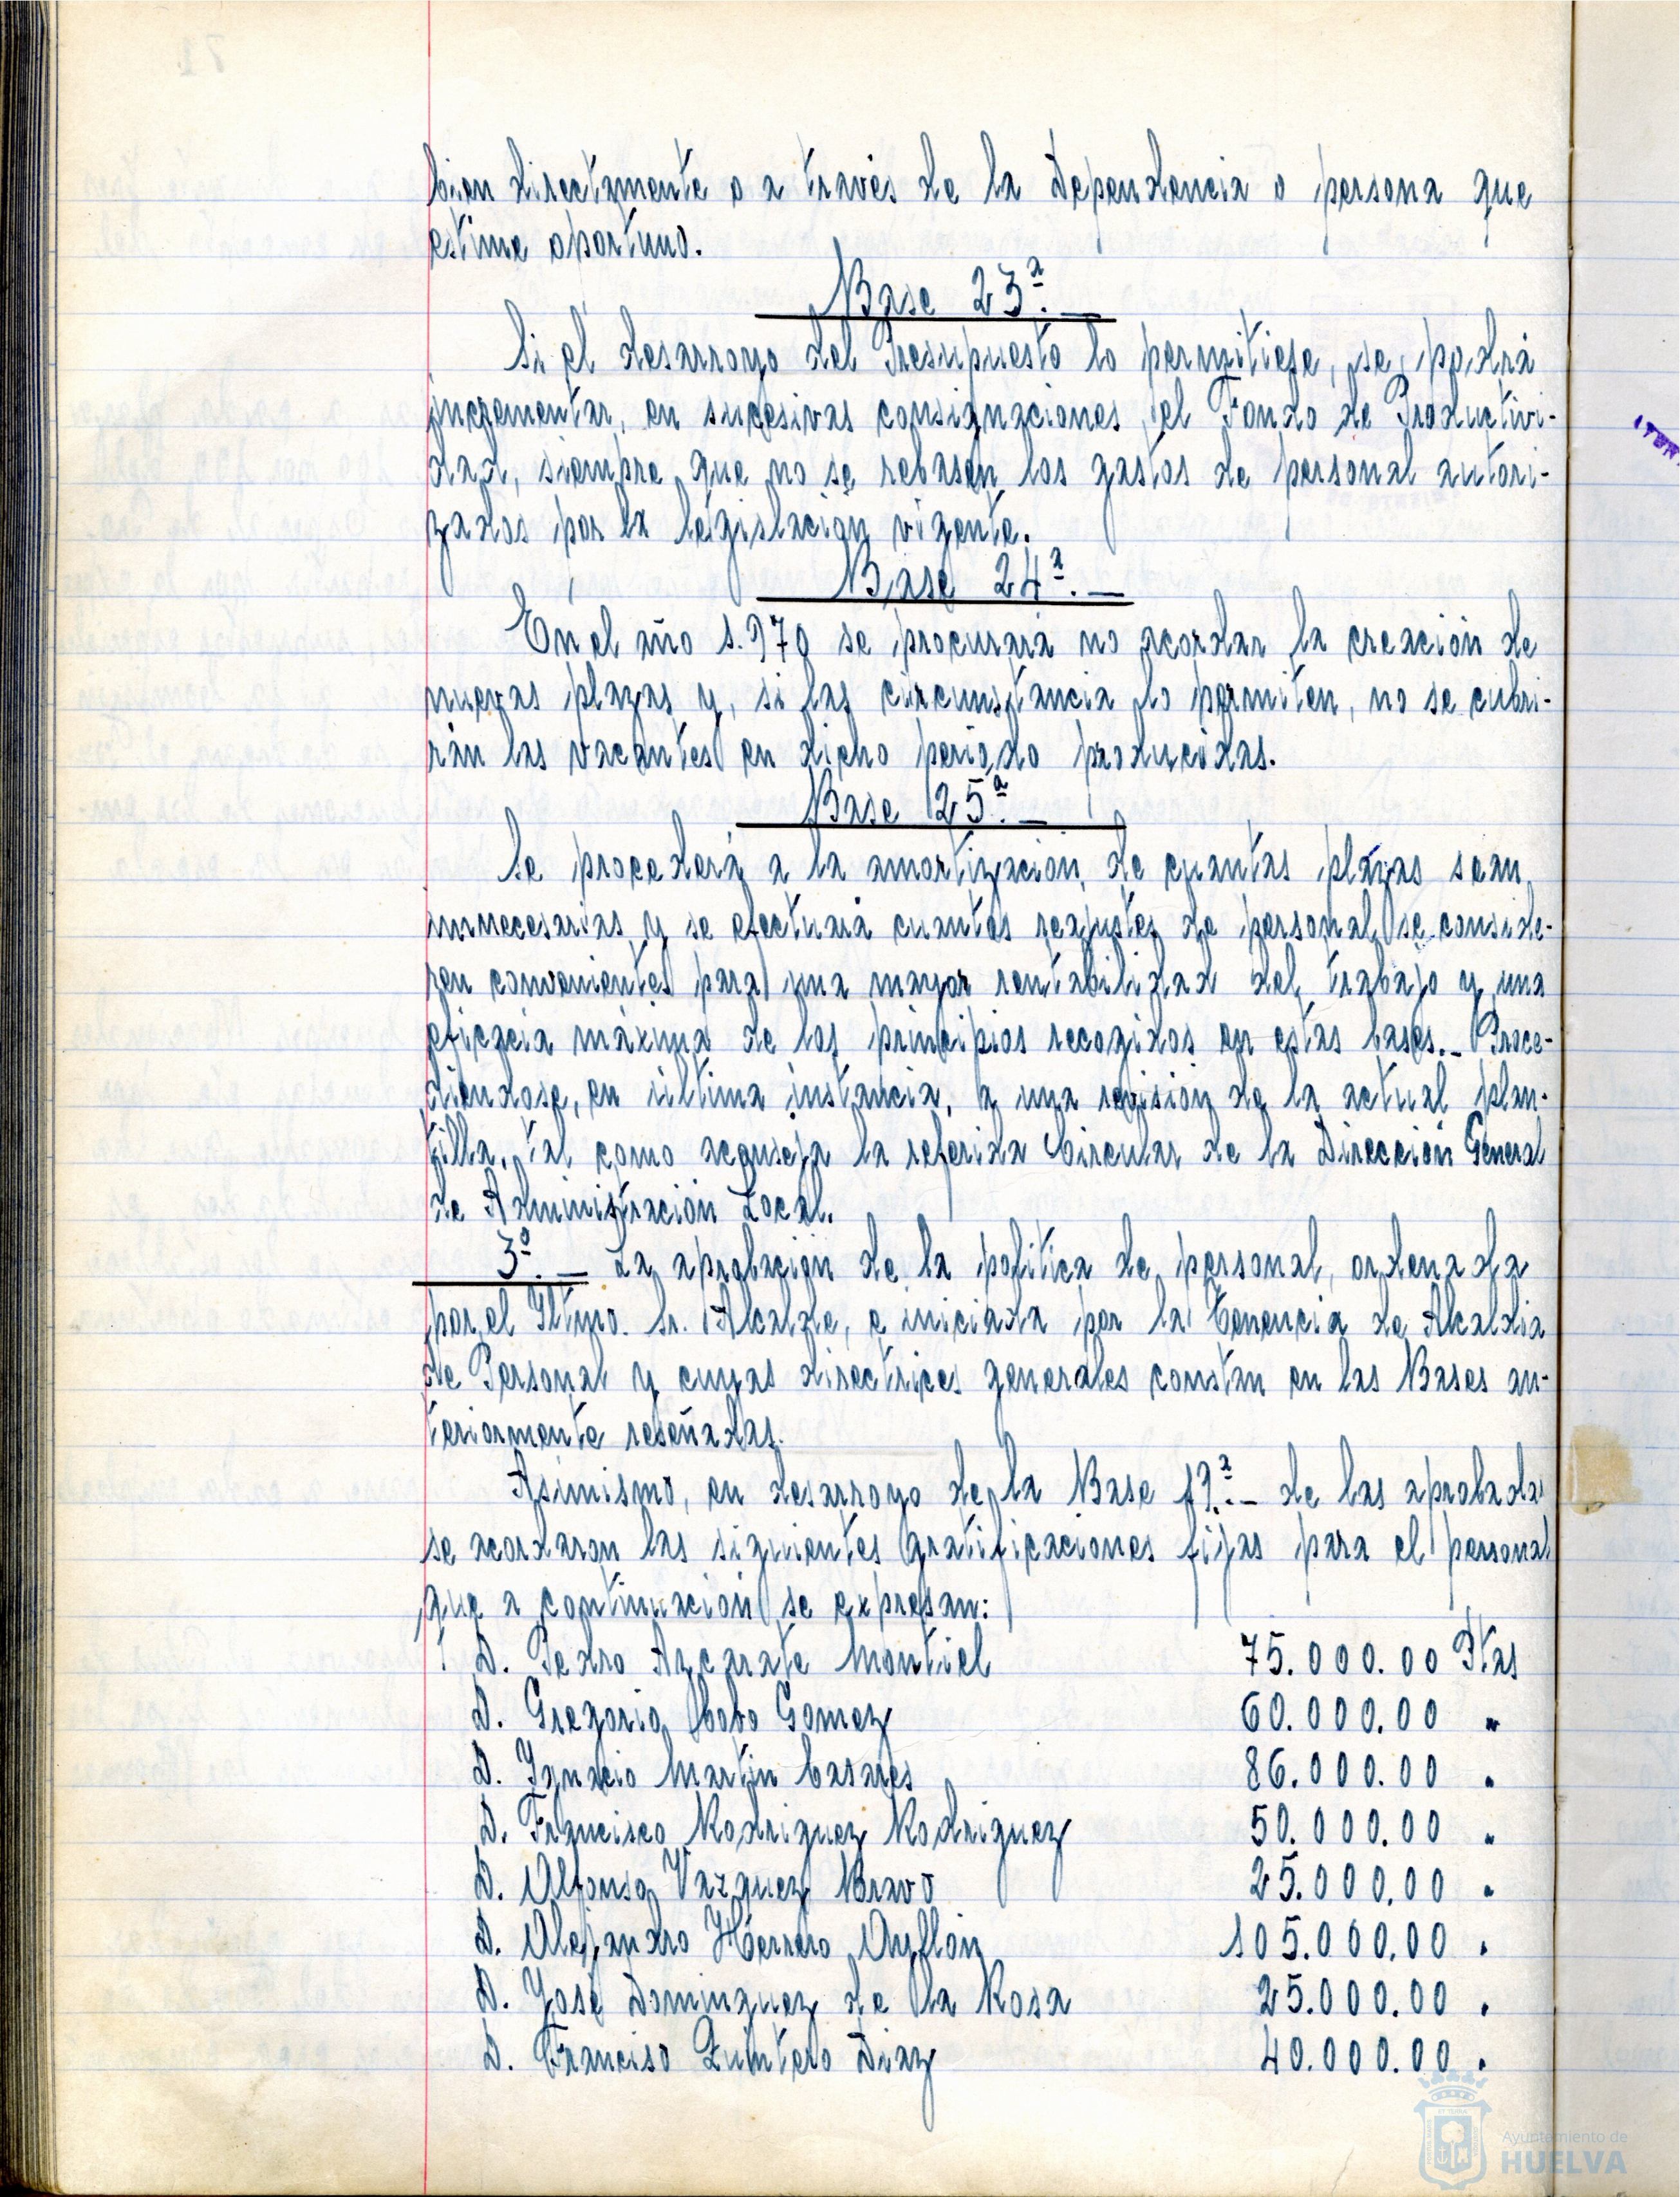 bien directamente o a través de la Dependencia o persona que
estime oportuno.
Base 23ª.—
Si el desarroyo del Presupuesto lo permitiese, se podrá
incrementar, en sucesivas consignaciones el Fondo de Productivi-
dad, siempre que no se rebasen los gastos de personal autori-
zados por la legislación vigente.
Base 24ª.—
En el año 1.970 se procurará no acordar la creación de
nuevas plazas y, si las circunstancia lo permiten, no se cubri-
rán las vacantes en dicho periodo producidas.
Base 25ª.—
Se procederá a la amortización de cuantas plazas sean
innecesarias y se efectuará cuantos reajustes de personal se conside-
ren convenientes para una mayor rentabilidad del trabajo y una
eficacia máxima de los principios recogidos en estas bases.- Proce-
diendose, en última instancia, a una revisión de la actual plan-
tilla, tal como aconseja la referida Circular de la Dirección General
de Administración Local.
3º.— La aprobación de la política de personal, ordenada
por el Iltmo. Sr. Alcalde, e iniciada por la Tenencia de Alcaldia
de Personal y cuyas directrices generales constan en las Bases an-
teriormente reseñadas.
Asimismo, en desarroyo de la Base 19ª.- de las aprobadas
se acordaron las siguientes gratificaciones fijas para el personal
que a continuación se expresan:
D. Pedro Azcarate Montiel 75.000.00 Ptas
D. Gregorio Cobo Gomez 60.000.00 "
D. Ignacio Martin Casares 86.000.00 "
D. Francisco Rodriguez Rodriguez 50.000.00 "
D. Alfonso Vazquez Bravo 25.000.00 "
D. Alejandro Herrero Ayllón 105.000.00 "
D. José Dominguez de la Rosa 25.000.00 "
D. Franciso Quintero Diaz 40.000.00 "
Ayuntamiento de
HUELVA